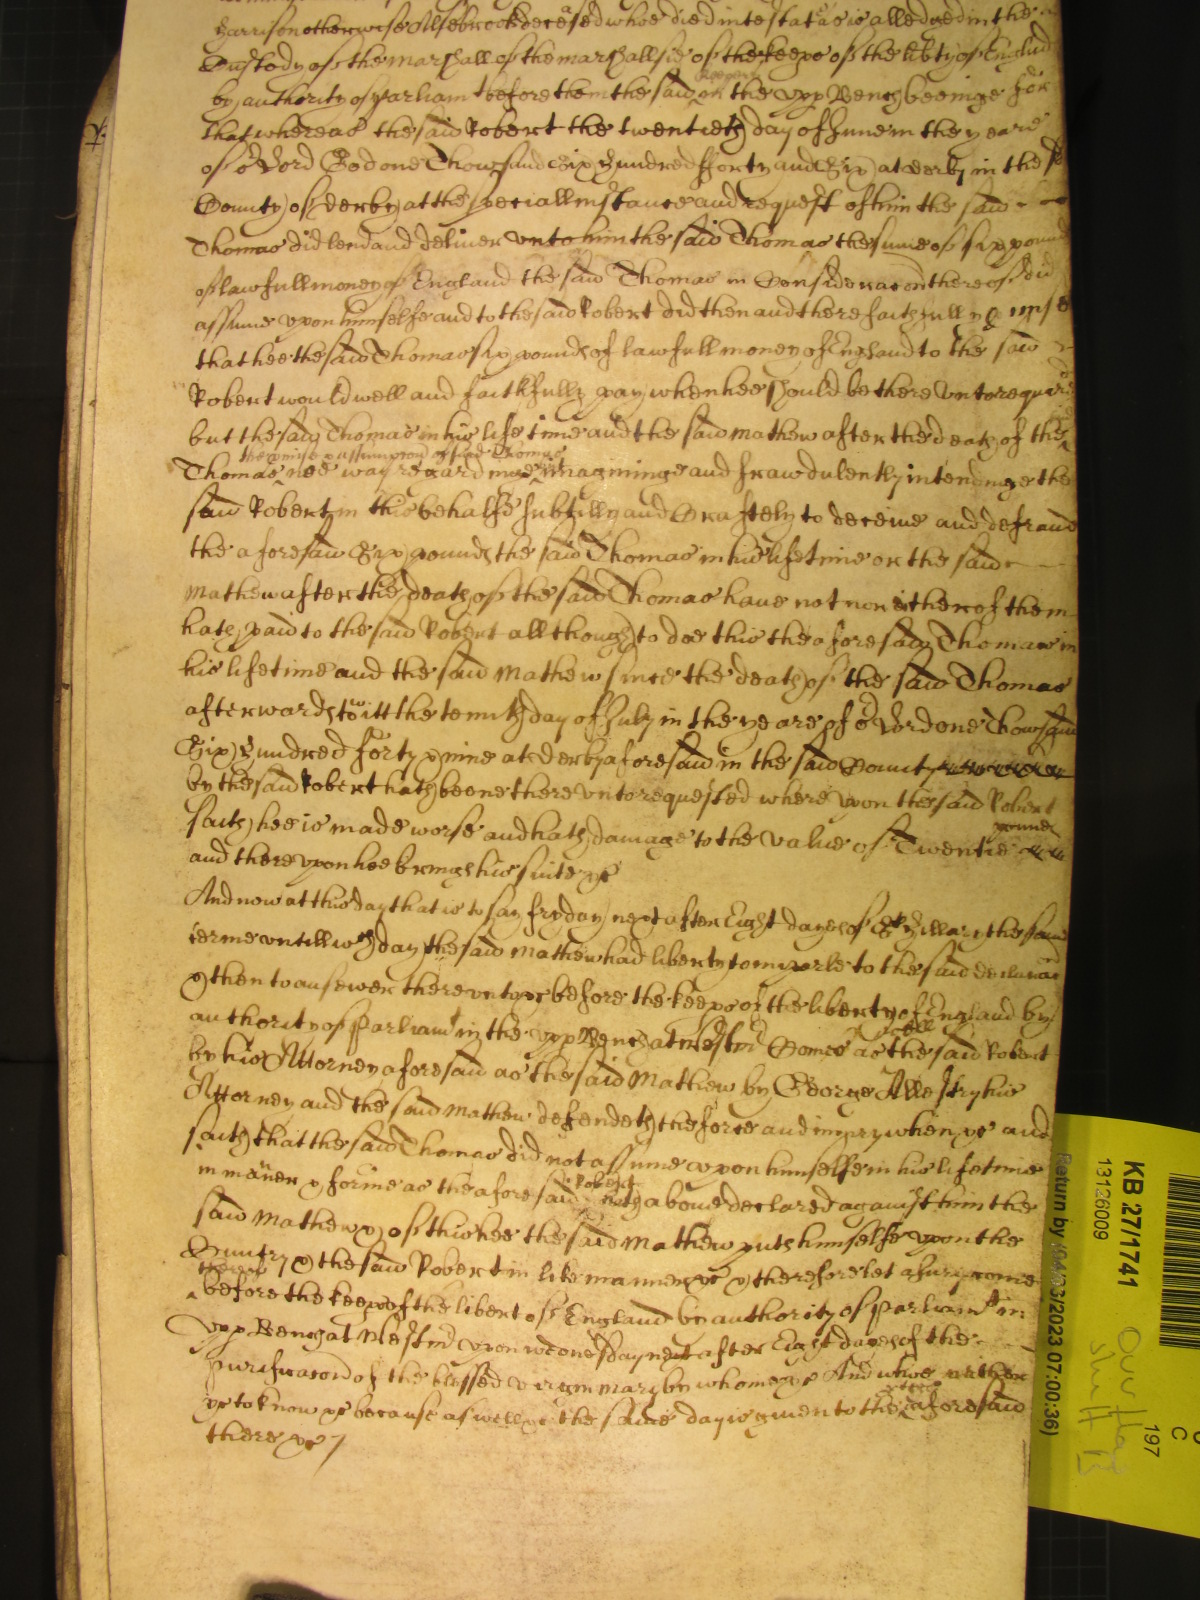 Harrison otherwise Alsebrook deceased whoe died intestat as is alledged in the
Custody of the marshall of the marshallsie of the keeps of the libty of England
by authority of Parliamt before them the said keepers in the upp Bench beeinge for
that whereas the said Robert the twentieth day of June in the yeare
of or Lord God one Thowsand Six Hundred fforty and Six at derby in the
County of derby at the speciall instance and request of him the said
Thomas did lend and deliver unto him the said Thomas the sume of six pounds
of lawfull money of England the said Thomas in Consideracon thereof did
assume upon himselfe and to the said Robert did then and there faithfully
that hee the said Thomas six pounds of lawfull money of England to the said
Robert would well and faithfully pay when hee should be there unto required
but the said Thomas in his life time and the said Mathew after the death of the
the pmise & assumpcon of said Thomas
Thomas noe way regarding imagininge and frawdulently intendinge the
said Robert in this behalfe subtilly and Craftely to deceive and defraud
the aforesaid Six pounds the said Thomas in his life time or the said
Mathew after the death of the said Thomas have not nor either of them
hath paid to the said Robert all though to doe this the aforesaid Thomas in
his lifetime and the said Mathew since the death of the said Thomas
afterwards to witt the tenth day of July in the yeare of or Lord one Thowsand
Six Hundred forty & nine at derby aforesaid in the said County
by the said Robert hath beene there unto requested where upon the said Robert
saith hee is made worse and hath damage to the value of Twentie pounds
and there upon hee brings his suite &c
And now at this day that is to say fryday next after Eight dayes of St Hillary the same
terme untill wch day the said Mathew had liberty to imparle to the said declaracon
& then to answer there unto &c before the keeps of the liberty of England by
authority of Parliamt in the upp Bench at Westmr Comes as well the said Robert
by his Attorney aforesaid as the said Mathew by George Allestry his
Attorney and the said Mathew defendeth the force and iniury when &c and
saith that the said Thomas did not assume upon himselfe in his lifetime
in maner & forme as the aforesaid Robert hath above declared against him the
said Mathew & of this hee the said Mathew puts himselfe upon the
Cuntry & the said Robert in like manner &c & therefore let a Jury come
before the keeps of the libert of England by authority of Parliamt in
upp Bench at Westmr upon wednesday next after Eight dayes of the
purificacon of the blessed virgin mary by whome &c And whoe neither
&c to know &c because as well &c the same day is given to the pties aforesaid
there &c
KB 27/1741
13126009
Return by (04/03/2023 07:00:36)
197
C